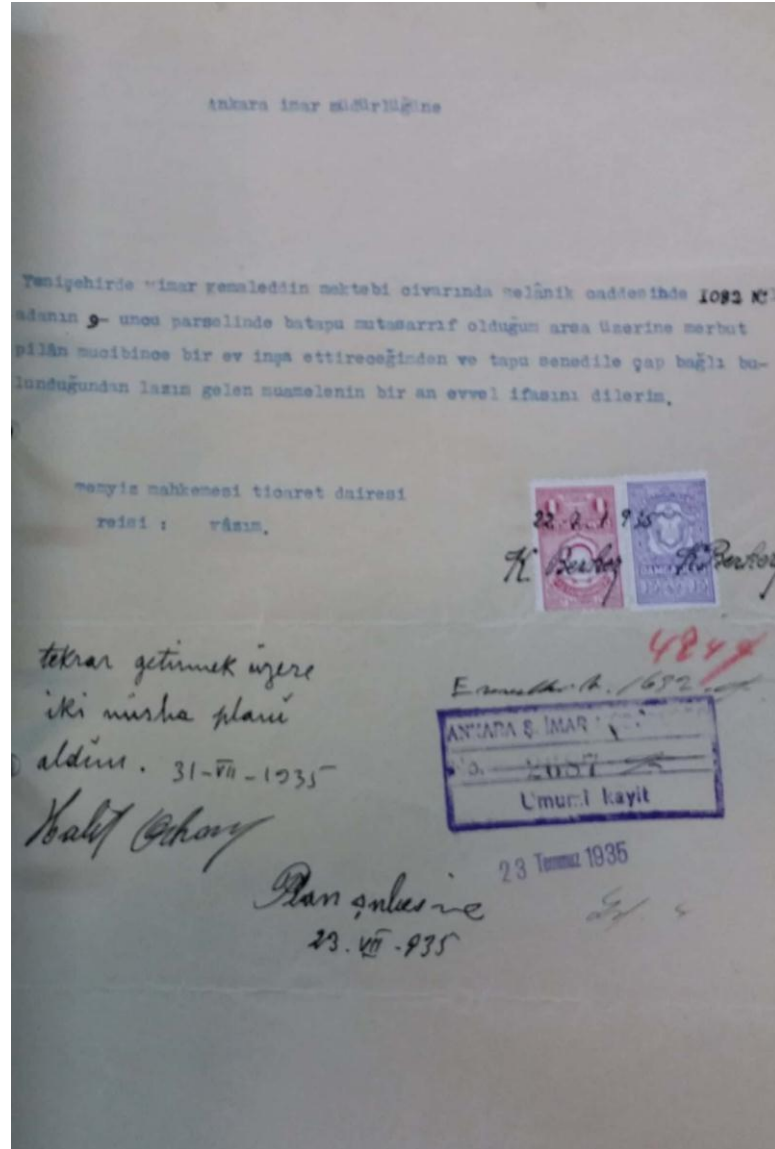 Ankara imar müdürlüğüne
Yenişehirde mimar kemaleddin mektebi civarında selânik caddesinde 1082 N
adanın 9- uncu parselinde batapu mutasarrıf olduğum arsa üzerine merbut
pilân mucibince bir ev inşa ettireceğimden ve tapu senedile çap bağlı bu-
lunduğundan lazım gelen muamelenin bir an evvel ifasını dilerim.
Temyiz mahkemesi ticaret dairesi
reisi : râsım.
K Berkoy K Berkoy
tekrar getirmek üzere
iki nüsha planı
aldım. 31-VII-1935
Halit
ANKARA Ş. İMAR
No.
Umumî kayit
23 Temmuz 1935
Plan şubesine
23.VII-935